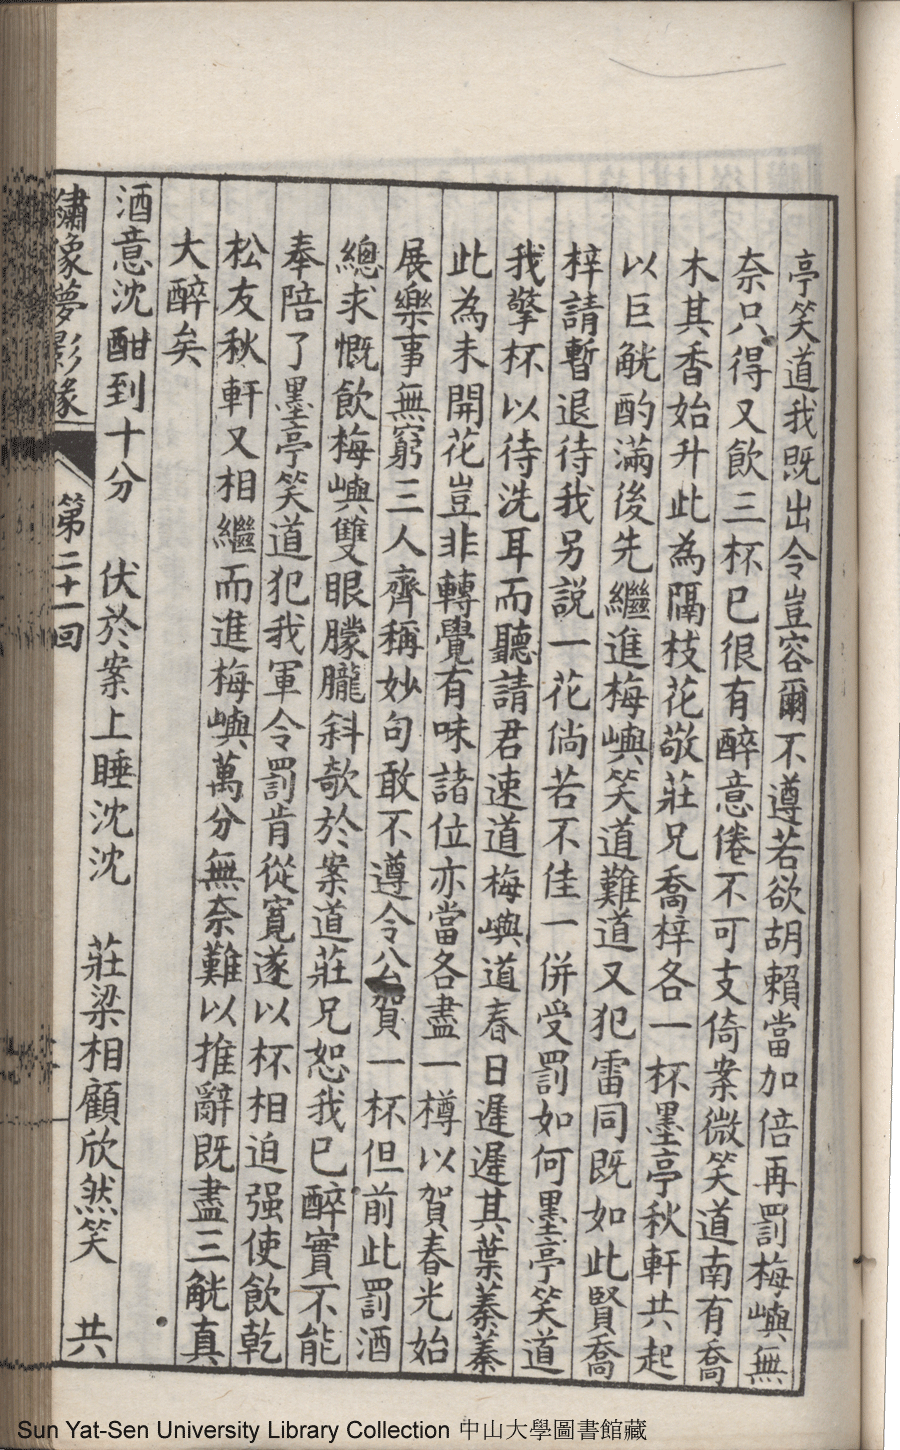 亭笑道我既出令豈容爾不遵若欲胡賴當加倍再罰梅嶼無
奈只得又飲三杯已很有醉意倦不可支倚案微笑道南有喬
木其香始升此為隔枝花敬莊兄喬梓各一杯墨亭秋軒共起
以巨觥酌滿後先繼進梅嶼笑道難道又犯雷同既如此賢喬
梓請暫退待我另説一花倘若不佳一併受罰如何墨亭笑道
我擎杯以待洗耳而聽請君速道梅嶼道春日遲遲其葉蓁蓁
此為未開花豈非轉覺有味諸位亦當各盡一樽以賀春光始
展樂事無窮三人齊稱妙句敢不遵令公賀一杯但前此罰酒
總求慨飲梅嶼雙眼朦朧斜欹於案道莊兄恕我已醉實不能
奉陪了墨亭笑道犯我軍令罰肯從寬遂以杯相迫强使飲乾
松友秋軒又相繼而進梅嶼萬分無奈難以推辭既盡三觥真
大醉矣
酒意沈酣到十分　伏於案上睡沈沈　莊梁相顧欣然笑　共
繡像夢影緣　第二十一回
Sun Yat-Sen University Library Collection 中山大學圖書館藏